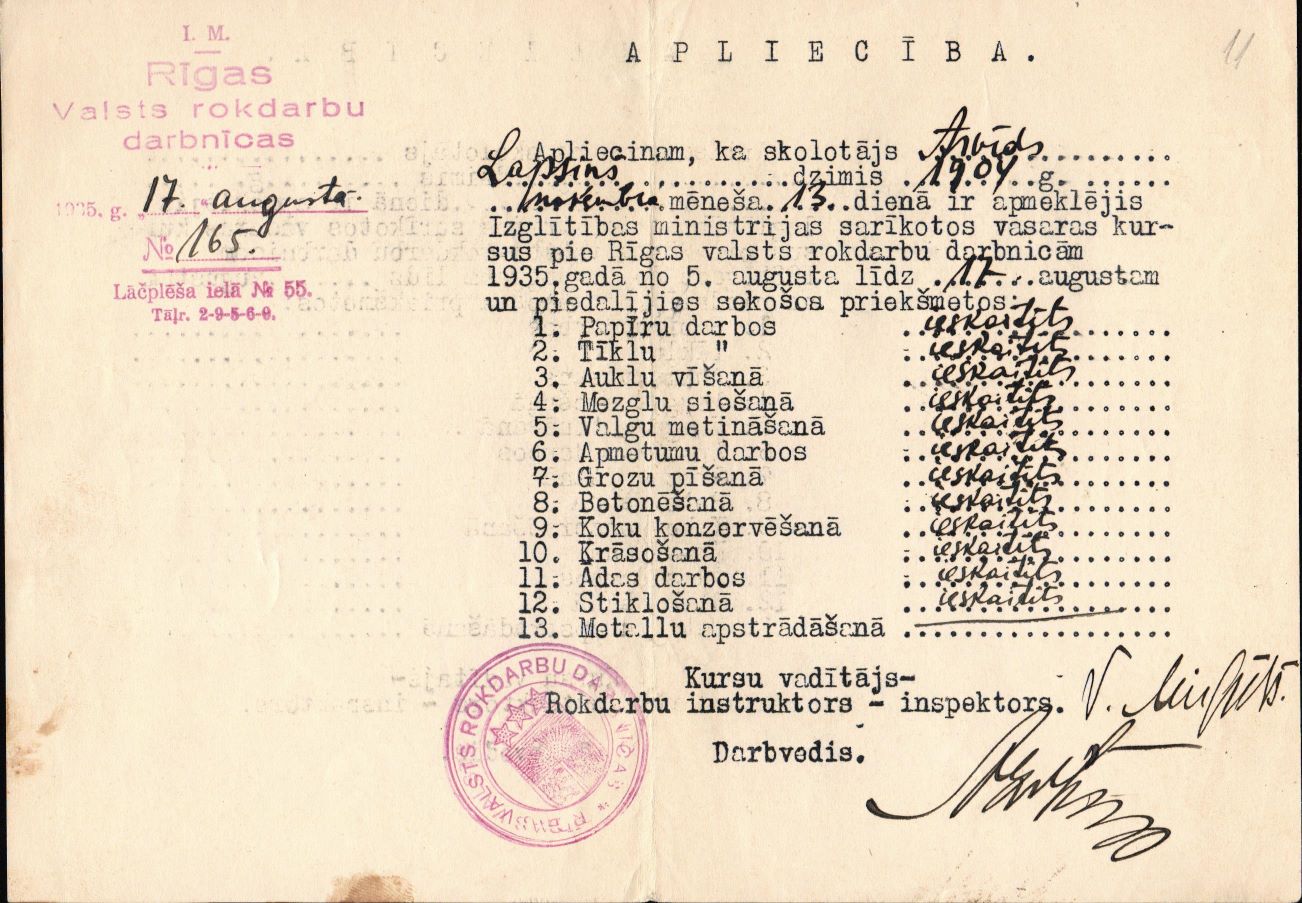 I. M.
Rīgas
Valsts rokdarbu
darbnīcas
1935. g. „17.“ augustā.
№ 165.
Lāčplēša ielā № 55.
Tāļr. 2-9-5-6-0.
11
APLIECĪBA.
Apliecinam, ka skolotājs Arvīds
Lapsiņš dzimis 1904 g.
novembra mēneša 13. dienā ir apmeklējis
Izglītības ministrijas sarīkotos vasaras kur-
sus pie Rīgas valsts rokdarbu darbnicām
1935.gadā no 5. augusta līdz 17. augustam
un piedalījies sekošos priekšmetos:
1. Papīru darbos ieskaitīts
2. Tīklu " ieskaitīts
3. Auklu vīšanā ieskaitīts
4. Mezglu siešanā ieskaitīts
5. Valgu metināšanā ieskaitīts
6. Apmetumu darbos ieskaitīts
7. Grozu pīšanā ieskaitīts
8. Betonēšanā ieskaitīts
9. Koku konzervēšanā ieskaitīts
10. Krāsošanā ieskaitīts
11. Ādas darbos ieskaitīts
12. Stiklošanā ieskaitīts
13. Metallu apstrādāšanā
Kursu vadītājs-
Rokdarbu instruktors - inspektors.
Darbvedis.
RĪGAS VALSTS ROKDARBU DARBNĪCAS *